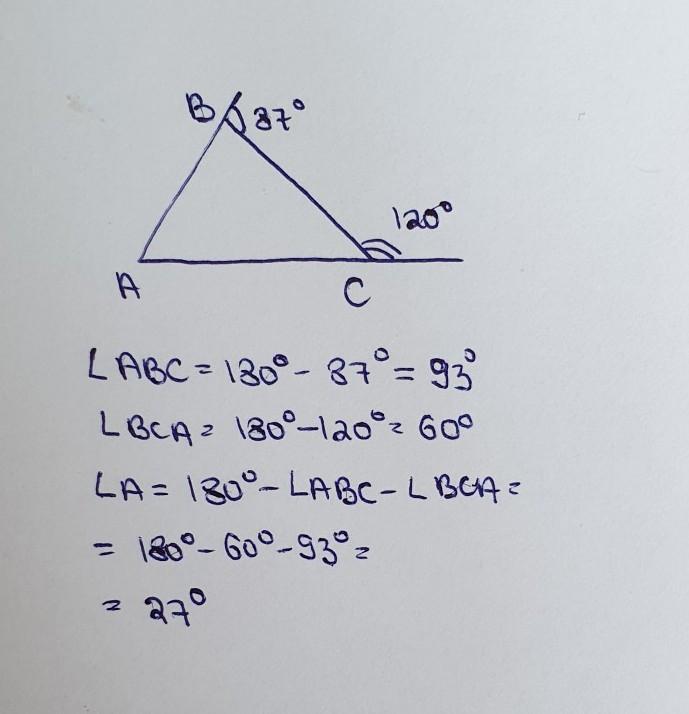 B 87°
120°
A C
∠ABC = 180° - 87° = 93°
∠BCA = 180° - 120° = 60°
∠A = 180° - ∠ABC - ∠BCA =
= 180° - 60° - 93° =
= 27°